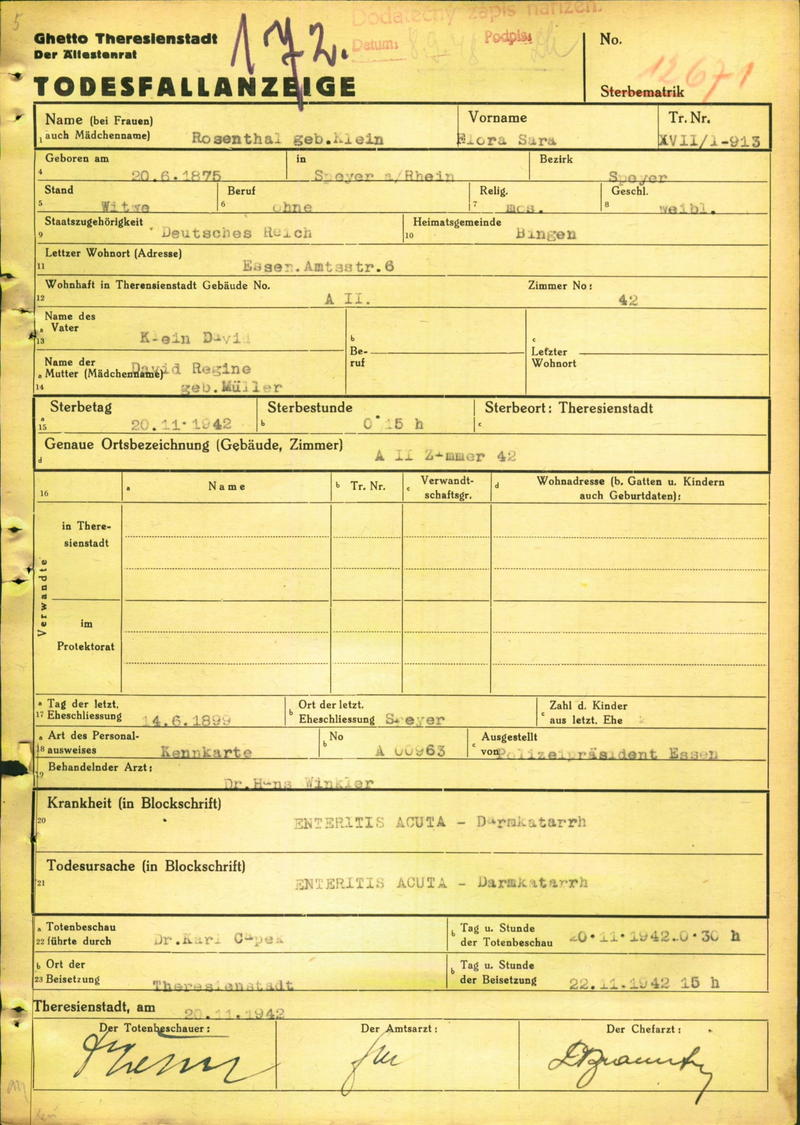 5
Dodatečný zápis nařízen.
Ghetto Theresienstadt
Der Ältestenrat
172.
Datum: 8.9.48 Podpis:
No.
12671
TODESFALLANZEIGE
Sterbematrik
Name (bei Frauen) Vorname Tr. Nr.
1 auch Mädchenname) Rosenthal geb.Klein Flora Sara XVII/1-913
Geboren am in Bezirk
4 20.6.1875 Speyer a/Rhein Speyer
Stand Beruf Relig. Geschl.
5 Witwe 6 ohne 7 mos. 8 weibl.
Staatszugehörigkeit Heimatsgemeinde
9 Deutsches Reich 10 Bingen
Lettzer Wohnort (Adresse)
11 Essen.Amtsstr.6
Wohnhaft in Therensienstadt Gebäude No. Zimmer No:
12 A II. 42
Name des
a Vater
13 Klein David
b
Be-
ruf
c
Letzter
Wohnort
Name der David Regine
a Mutter (Mädchenname)
14 geb.Müller
Sterbetag Sterbestunde Sterbeort: Theresienstadt
a
15 20.11.1942 b 0.15 h c
Genaue Ortsbezeichnung (Gebäude, Zimmer)
d A II Zimmer 42
16 a Name b Tr. Nr. c Verwandt-
schaftsgr. d Wohnadresse (b. Gatten u. Kindern
auch Geburtdaten):
Verwandte
in There-
sienstadt
im
Protektorat
a Tag der letzt. b Ort der letzt. c Zahl d. Kinder
17 Eheschliessung 14.6.1899 Eheschliessung Speyer aus letzt. Ehe
a Art des Personal- b No c Ausgestellt
18 ausweises Kennkarte A 00963 von Polizeipräsident Essen
Behandelnder Arzt:
19 Dr.Hans Winkler
Krankheit (in Blockschrift)
20 ENTERITIS ACUTA - Darmkatarrh
Todesursache (in Blockschrift)
21 ENTERITIS ACUTA - Darmkatarrh
a Totenbeschau b Tag u. Stunde
22 führte durch Dr.Karl Capek der Totenbeschau 20.11.1942.0.30 h
b Ort der b Tag u. Stunde
23 Beisetzung Theresienstadt der Beisetzung 22.11.1942 15 h
Theresienstadt, am 20.11.1942
Der Totenbeschauer: Der Amtsarzt: Der Chefarzt: